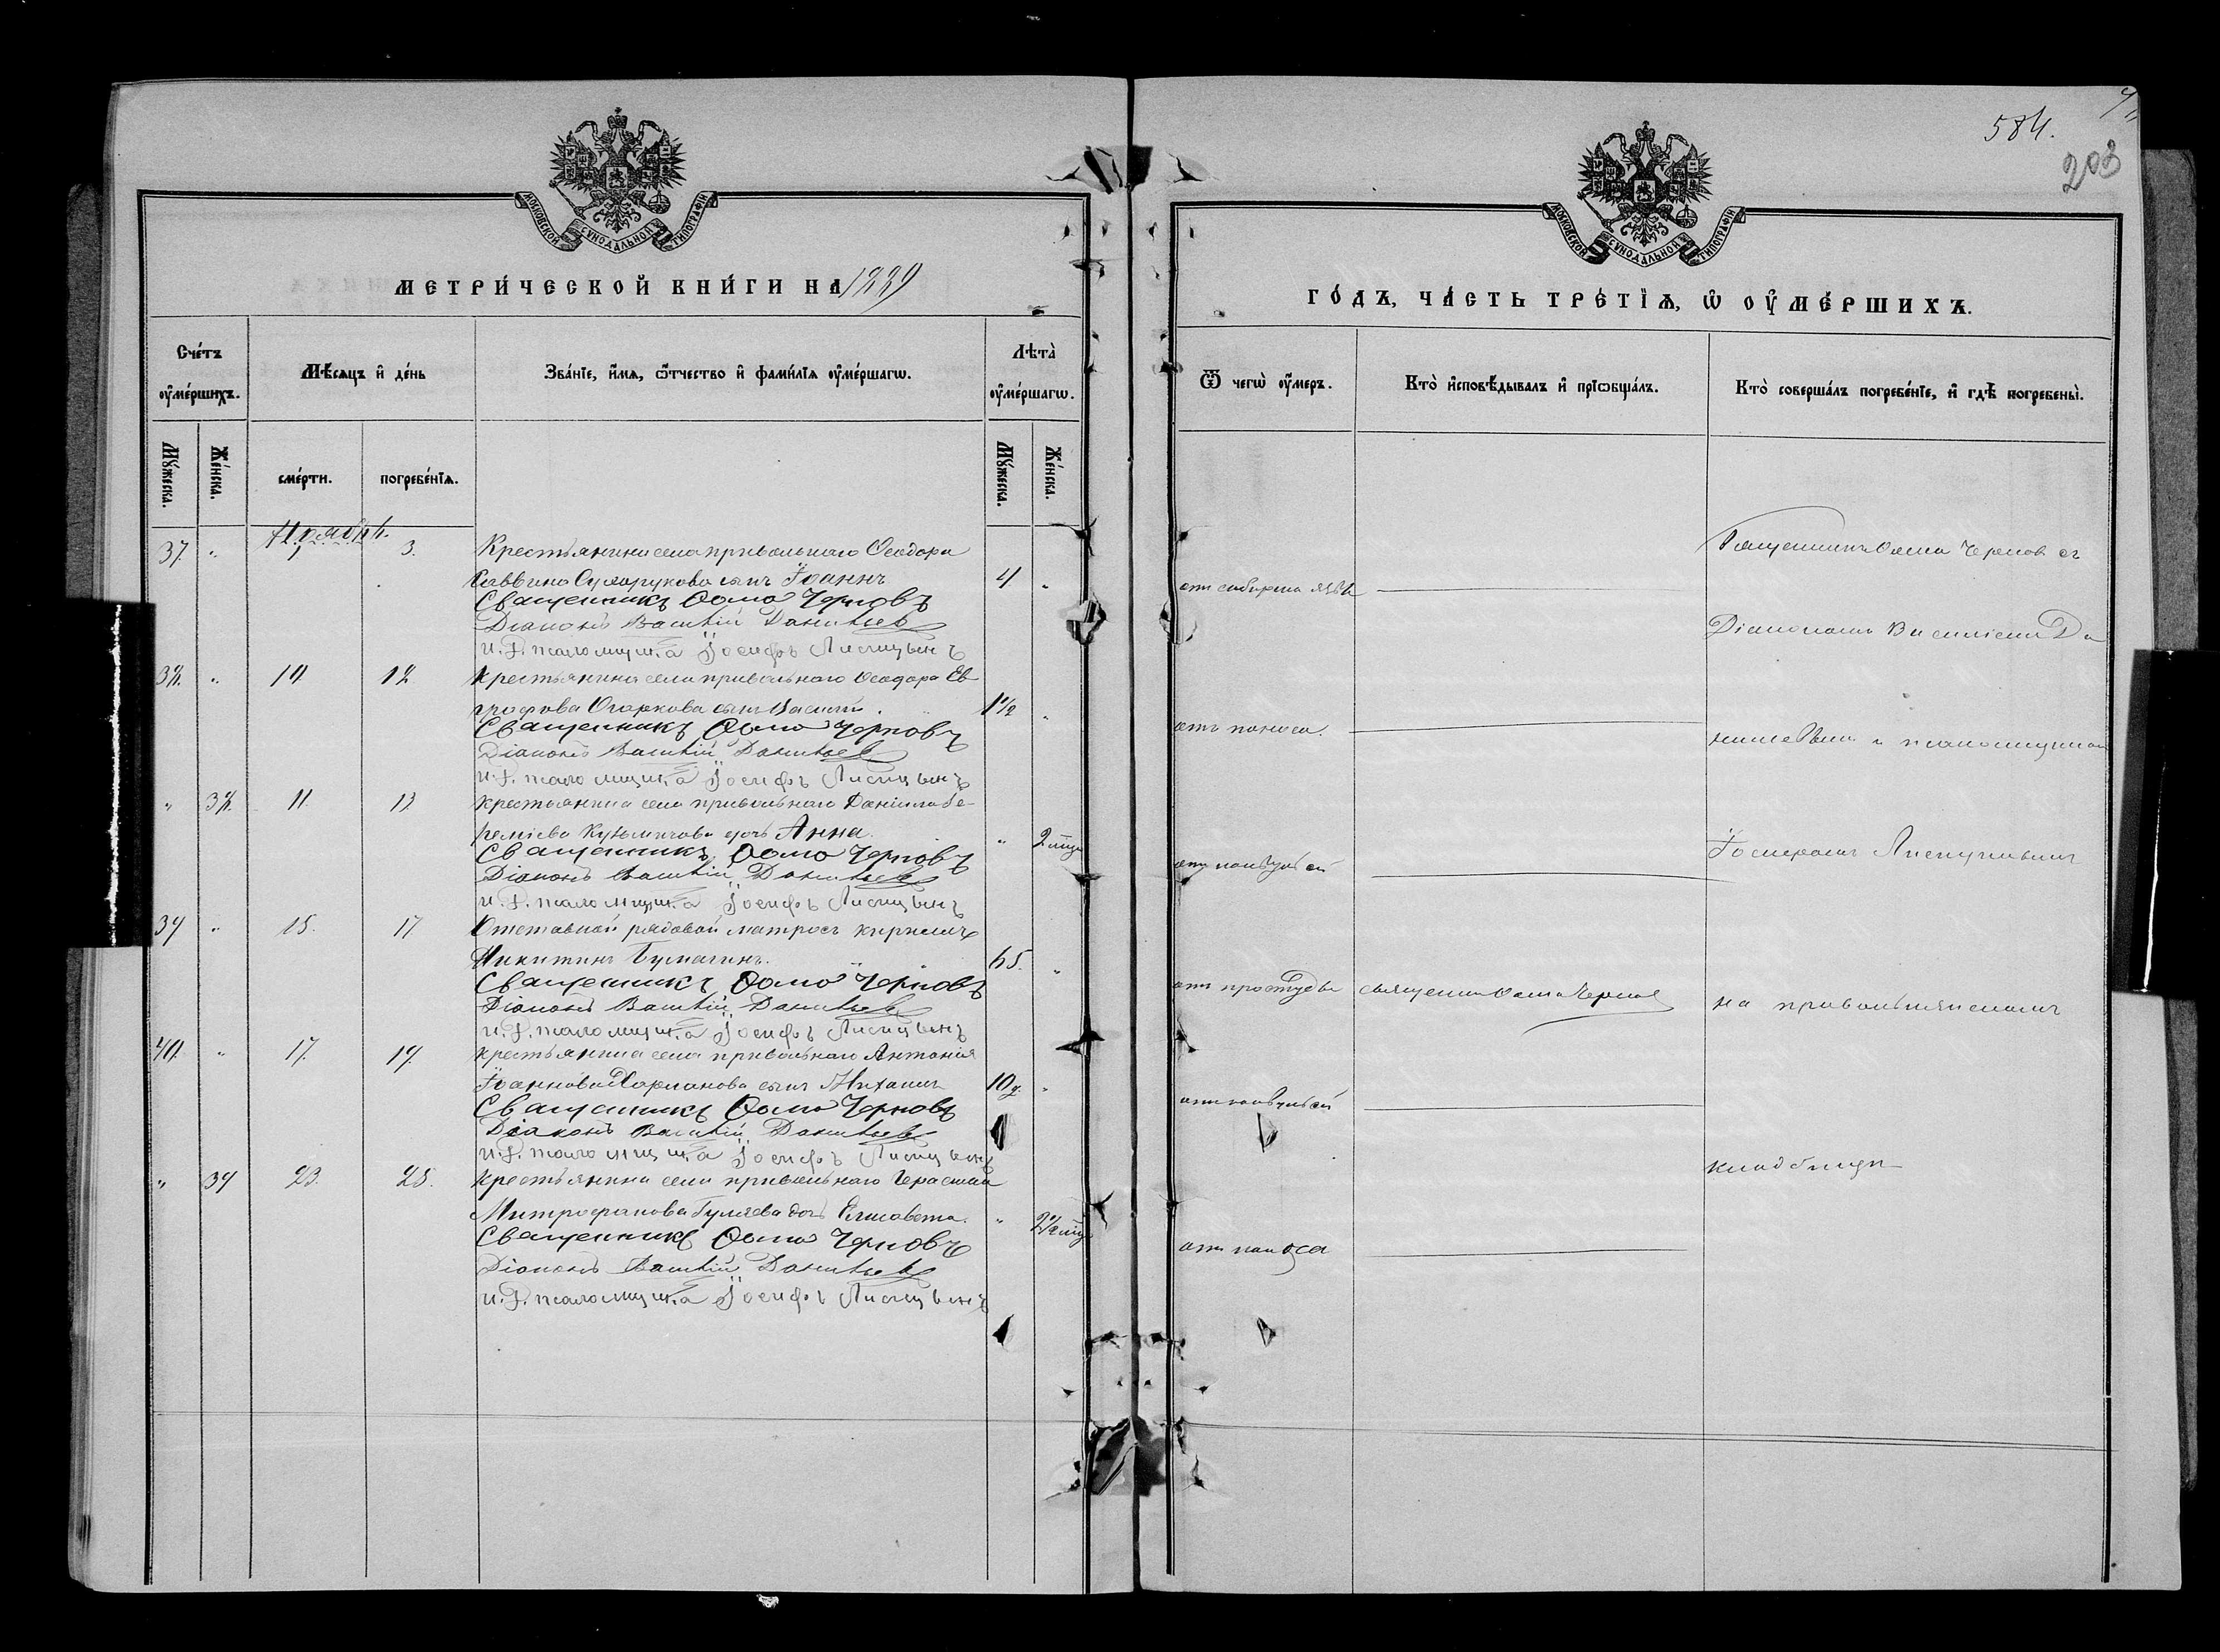 584.
203
МОСКОВСКОЙ СѴНОДАЛЬНОЙ ТИПОГРАФІИ
МЕТРИ́ЧЕСКОЙ КНИ́ГИ НА 1889
Сче́тъ оу҆ме́ршихъ.
Мѣ́сяцъ и҆ де́нь
Зва́нїе, и҆́мя, ѻ҆́тчество и҆ фами́лїя оу҆ме́ршагѡ.
Лѣта̀ оу҆ме́ршагѡ.
Мꙋ́жеска.
Же́нска.
сме́рти.
погребе́нїѧ.
Мꙋ́жеска.
Же́нска.
Ноябрь.
37. " 1 3. Крестьянина села привольнаго Ѳеодора
Саввина Сумарукова сынъ Іоаннъ 4 "
Священникъ Ѳома Черновъ
Діаконъ Василій Данилье
И. д. псаломщика Іосифъ Лисицынъ
38. " 10 12 Крестьянина села привольнаго Ѳеодора Ев
графова Огаркова сынъ Василій. 1½ "
Священникъ Ѳома Черновъ
Діаконъ Василій Данилье
И. д. псаломщика Іосифъ Лисицынъ
" 38. 11. 13 Крестьянина села привольнаго Даніила Іе-
реміева Кузьмичова дочь Анна. " 2 мѣс.
Священникъ Ѳома Черновъ
Діаконъ Василій Данилье
И. д. псаломщика Іосифъ Лисицынъ
39 " 15. 17 Отставной рядовой матросъ Кириллъ
Никитинъ Бумагинъ. 65. "
Священникъ Ѳома Черновъ
Діаконъ Василій Данилье
И. д. псаломщика Іосифъ Лисицынъ
40. " 17. 19. Крестьянина села привольнаго Антонія
Іоаннова сынъ Михаилъ 10 "
Священникъ Ѳома Черновъ
Діаконъ Василій Данилье
И. д. псаломщика Іосифъ Лисицынъ
" 39 23. 25. Крестьянина села привольнаго Герасима
Митрофанова Гуляева дочь Елисавета. " 2½ мѣс.
Священникъ Ѳома Черновъ
Діаконъ Василій Данилье
И. д. псаломщика Іосифъ Лисицынъ
МОСКОВСКОЙ СѴНОДАЛЬНОЙ ТИПОГРАФІИ
ГО́ДЪ, ЧА́СТЬ ТРЕ́ТЇѦ, Ѡ҆ ОУ҆МЕ́РШИХЪ.
Ѿ чегѡ̀ оу҆́меръ.
Кто̀ и҆сповѣ́дывалъ и҆ прїѡбща́лъ.
Кто̀ соверша́лъ погребе́нїе, и҆ гдѣ̀ погребены̀.
Священникъ Ѳома Черновъ съ
отъ сибирки язвы
Діакономъ Василіемъ Да
отъ поноса.
нильевым и псаломщикомъ
Іосифомъ Лисицинымъ
отъ простуды священникъ Ѳома Черновъ на привольнянскомъ
кладбищѣ
отъ поноса